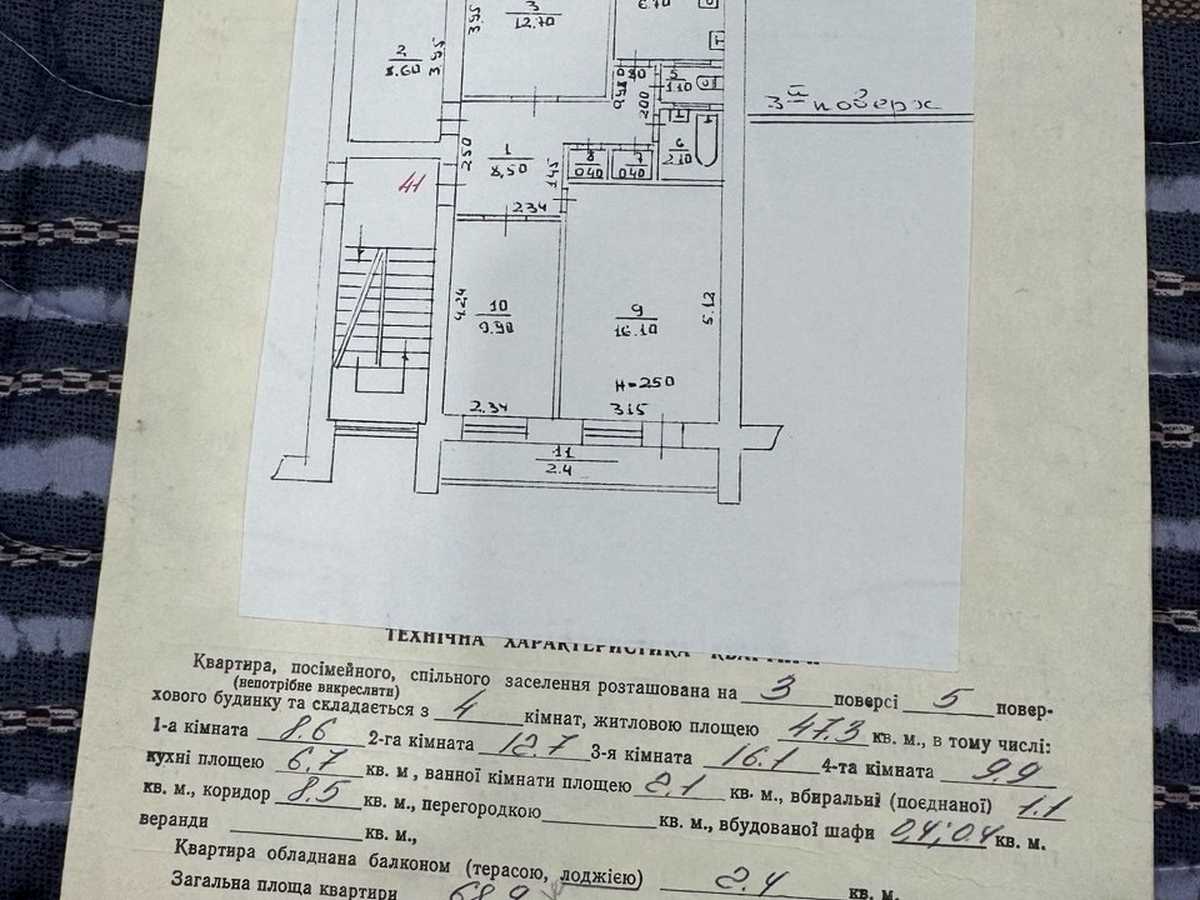 3
12.70
3.55
6.70
2
8.60
3.55
0.80
5
1.10
2.00
3й поверх
1
8,50
2.50
8
0.40
7
0.40
6
2.10
1.45
41
2.34
4.24
10
9.90
9
16.10
5.12
H=250
2.34
3.15
11
2.4
ТЕХНІЧНА ХАРАКТЕРИСТИКА КВАРТИРИ
Квартира, посімейного, спільного заселення розташована на 3 поверсі 5 повер-
(непотрібне викреслити)
хового будинку та складається з 4 кімнат, житловою площею 47.3 кв. м., в тому числі:
1-а кімната 8.6 2-га кімната 12.7 3-я кімната 16.1 4-та кімната 9.9
кухні площею 6.7 кв. м , ванної кімнати площею 2.1 кв. м., вбиральні (поєднаної) 1.1
кв. м., коридор 8.5 кв. м., перегородкою кв. м., вбудованої шафи 0,4; 0.4 кв. м.
веранди кв. м.,
Квартира обладнана балконом (терасою, лоджією) 2.4 кв. м.
Загальна площа квартири 68.9